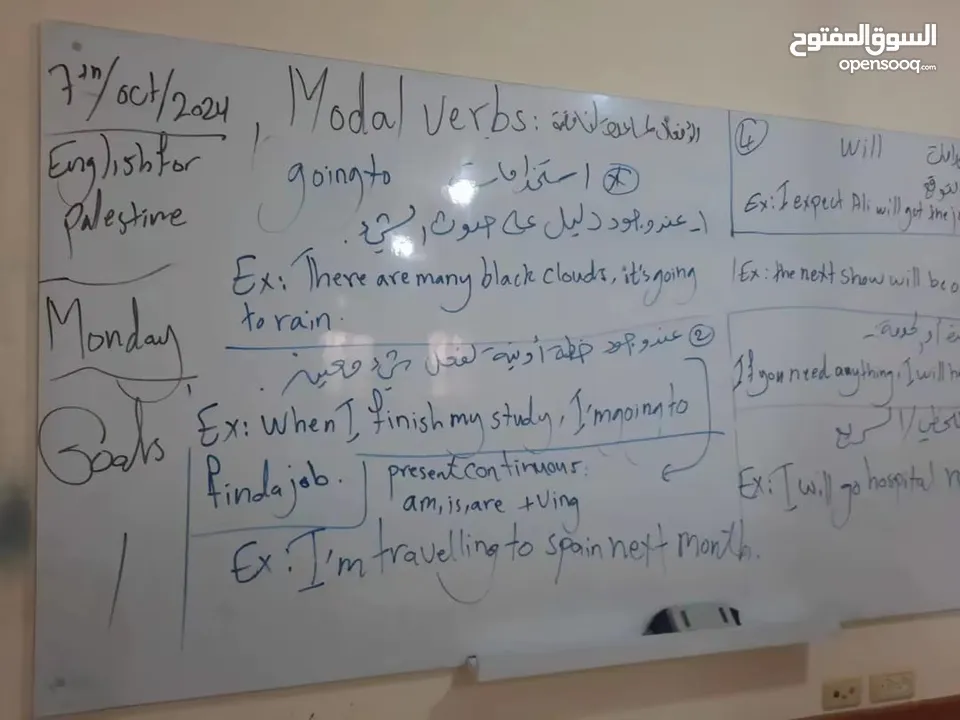 السوق المفتوح
opensooq.com
7th/oct/2024
English for
palestine
Monday
Goals
Modal verbs: الأفعال المساعدة الناقصة
going to استخدامات
1- عند وجود دليل على حدوث الشيء.
Ex: There are many black clouds, it's going
to rain.
2 عند وجود خطة أو نية لفعل شيء معين.
Ex: When I finish my study, I'm going to
find a job.
present continuous:
am, is, are + Ving
Ex: I'm travelling to spain next month.
4 will
التوقع
Ex: I expect Ali will get the j
Ex: the next show will be o
If you need anything, I will h
Ex: I will go hospital